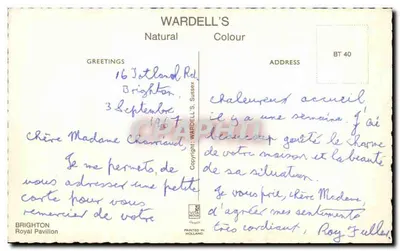 WARDELL'S
Natural Colour
GREETINGS
ADDRESS
BT 40
16 Jutland Rd.
Brighton
3 Septembre
1967
Chère Madame
Je me permets, de
vous adresser une petite
carte pour vous
remercier de votre
chaleureux accueil
il y a une semaine. J'ai
beaucoup goûté le charme
de votre maison et la beauté
de sa situation.
Je vous prie, chère Madame,
d'agréer mes sentiments
très cordiaux. Roy Fuller
Copyright: WARDELL'S, Sussex
BRIGHTON
Royal Pavilion
PRINTED IN
HOLLAND